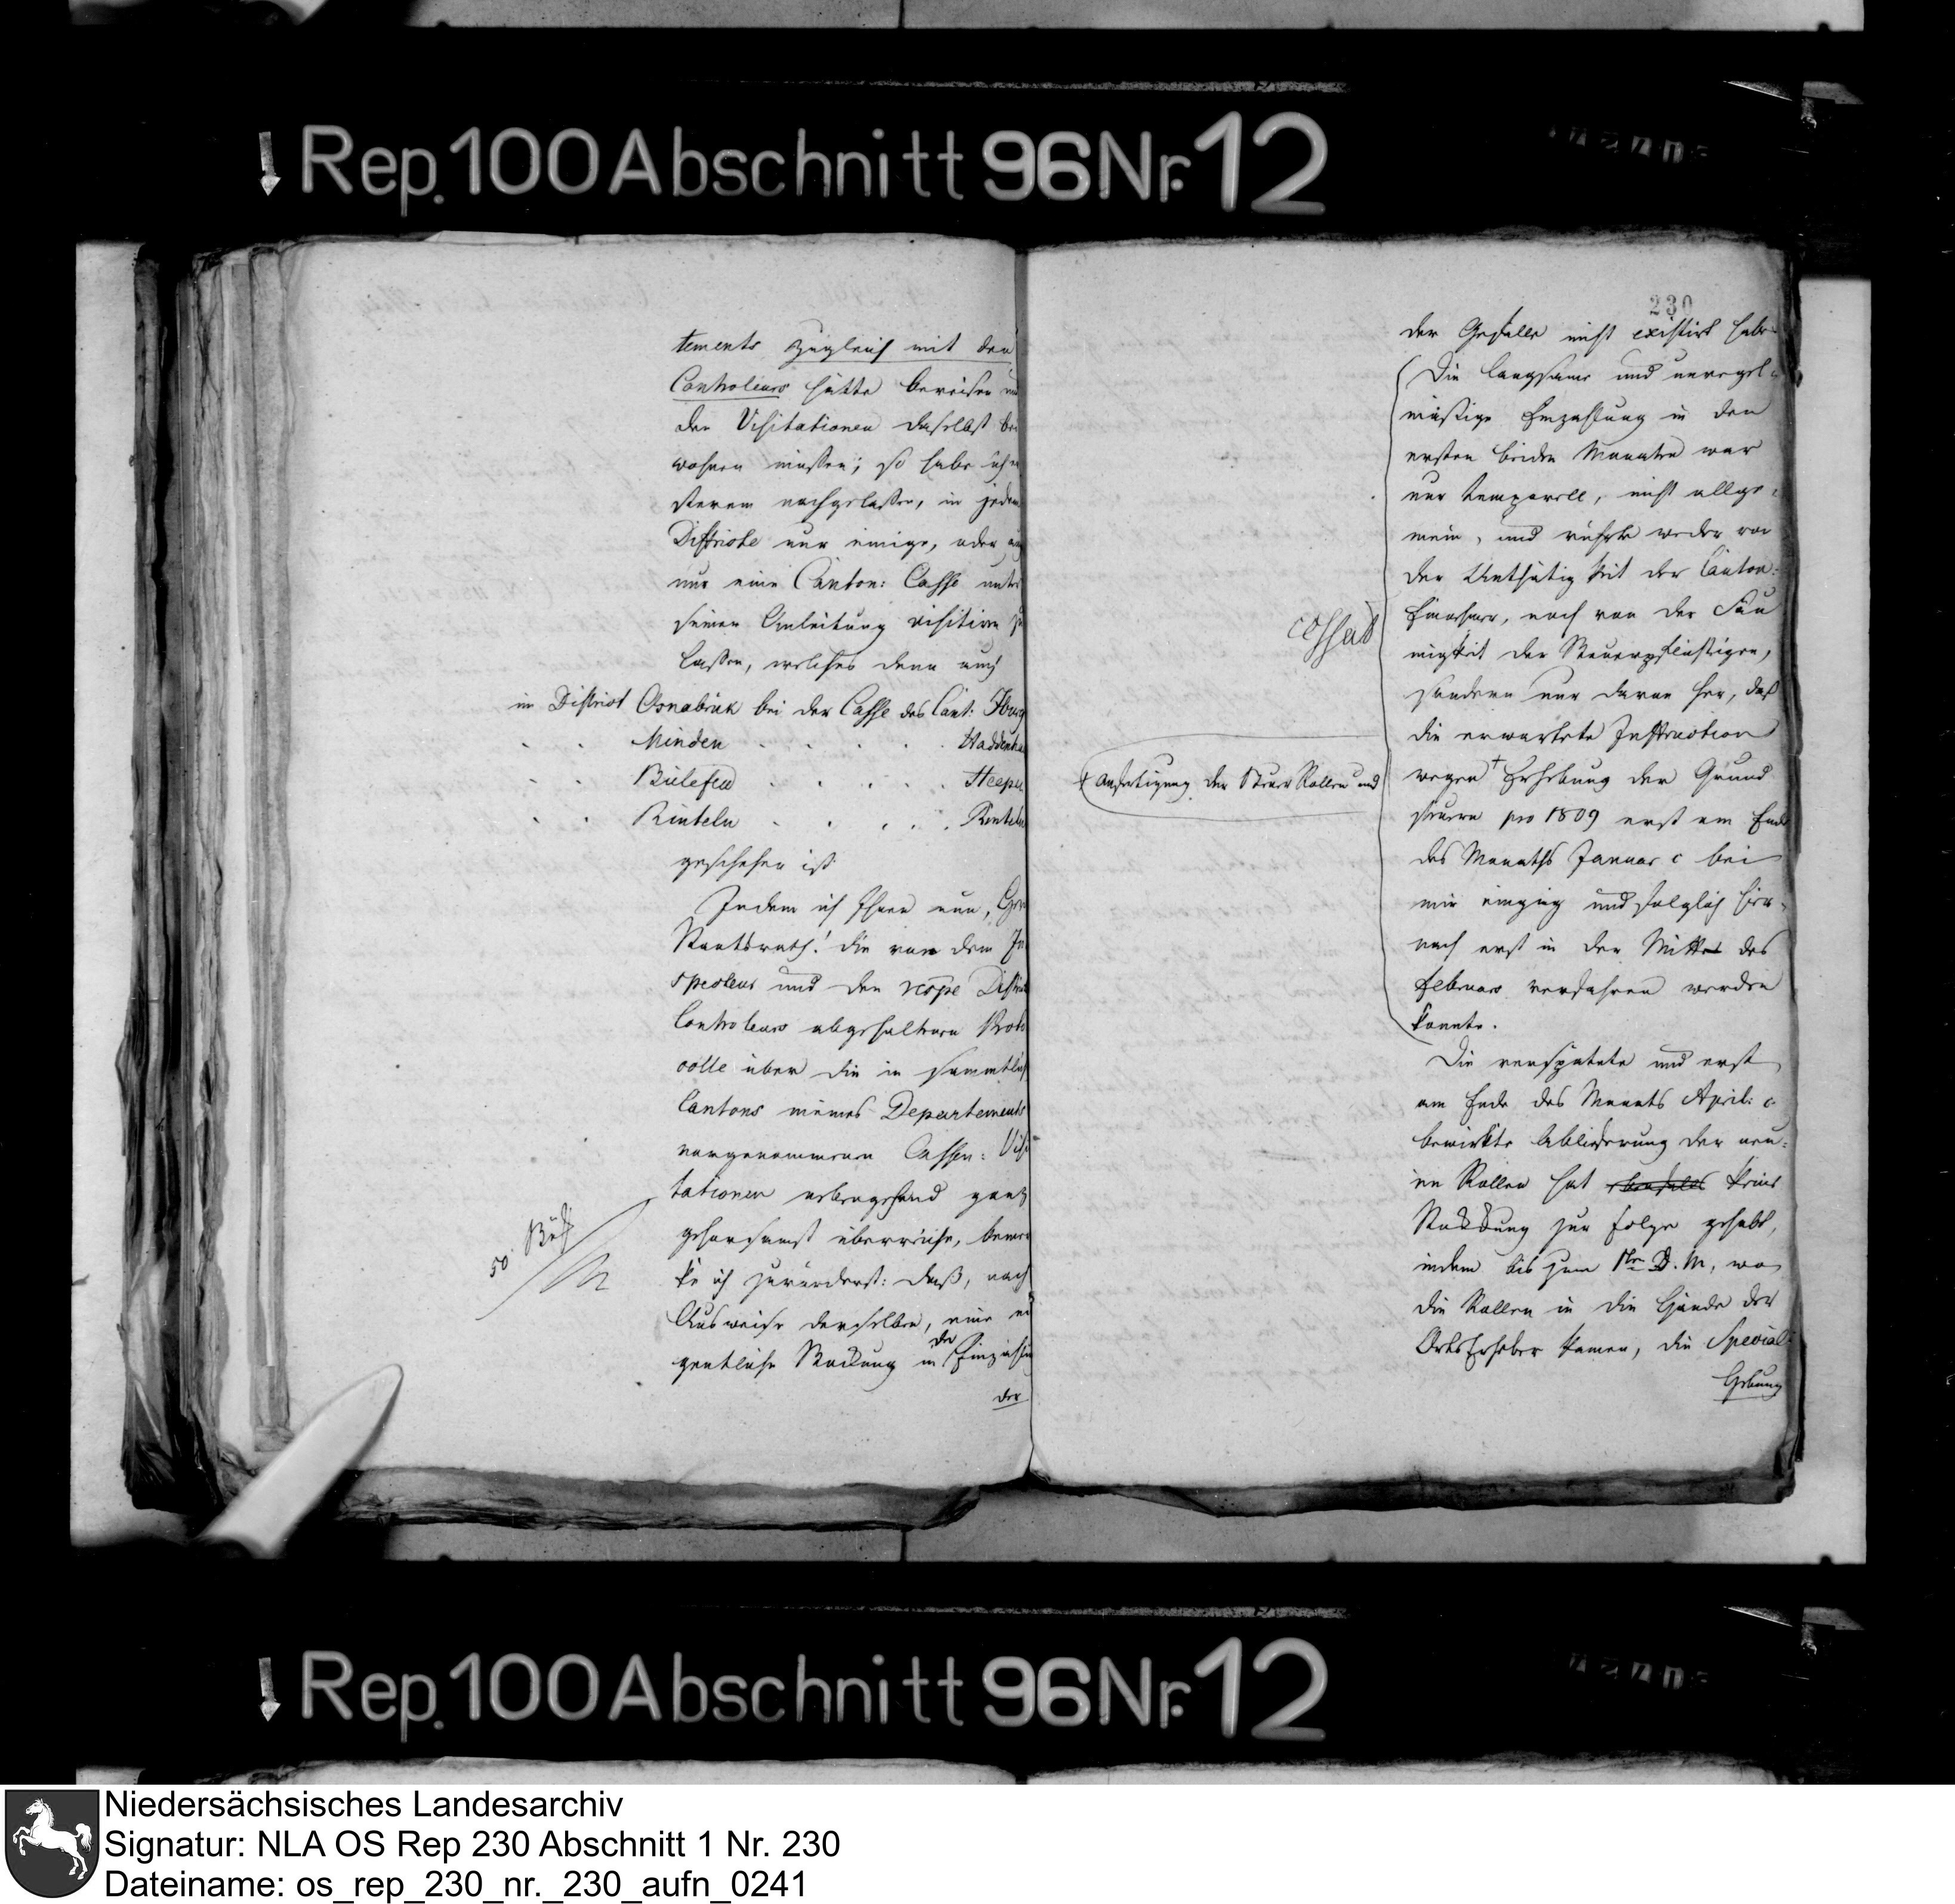 Rep. 100 Abschnitt 96 Nr. 12
tements zugleich mit den
Controleurs hätte bereisen und
den Visitationen daselbst bei
wohnen müssen; so habe ich er
sterem nachgelassen, in jedem
Districte nur einige, oder auch
nur eine Canton: Casse unter
seiner Anleitung visitiren zu
lassen, welches denn auch
im District Osnabrück bei der Casse des Cant: Iburg
Minden Haddenha
Bielefeld Heepen
Rinteln Rinteln
geschehen ist.
Indem ich Ihnen nun, Herr
Staatsrath! die von dem In
specteur und den respe District
Controleurs abgehaltenen Proto
colle über die in sämmtlichen
Cantons meines Departements
vorgenommenen Cassen: Visi
tationen anliegend ganz
gehorsamst überreiche, bemer
ke ich zuvörderst: daß, nach
Ausweise derselben, eine ei
gentliche Stockung in der Einziehung
der
50
230
der Gefälle nicht existirt habe.
Die langsame und unregel-
mäßige Einzahlung in den
ersten beiden Monaten war
nur temporell, nicht allge-
mein, und rührte weder von
der Unthätigkeit der Canton-
Einnehmer, noch von der Säu
migkeit der Steuerpflichtigen,
sondern nur daran her, daß
die erwartete Instruction
wegen † Erhebung der Grund
steuern pro 1809 erst am Ende
des Monaths Januar c bei
mir einging und folglich hier-
nach erst in der Mitte des
Februars verfahren werden
konnte.
cessat
† Anfertigung der Steuer Rollen und
Die verspätete und erst
am Ende des Monats April: c.
bewirkte Ablieferung der neu-
en Rollen hat ebenfalls keine
Stockung zur Folge gehabt,
indem bis zum d. M, wo
die Rollen in die Hände der
Orts Erheber kamen, die Special-
Hebung
Rep. 100 Abschnitt 96 Nr. 12
Niedersächsisches Landesarchiv
Signatur: NLA OS Rep 230 Abschnitt 1 Nr. 230
Dateiname: os_rep_230_nr._230_aufn_0241